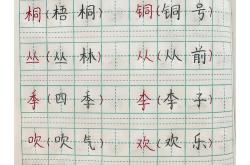 桐(梧桐) 铜(铜号)
丛(丛林) 从(从前)
季(四季) 李(李子)
吹(吹气) 欢(欢乐)